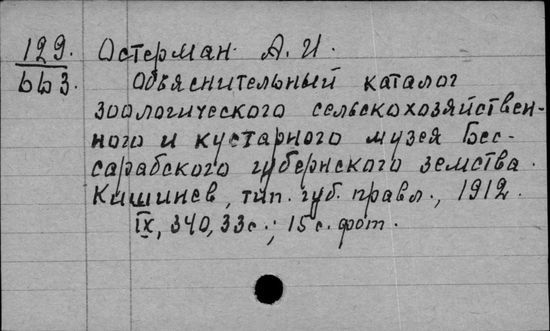 129. Остерман А. И.
ЬЬ3. Объяснительный каталог
зоологического сельскохозяйствен-
ного и кустарного музея Бес-
сарабского губернского земства.
Кишинев, тип. губ. правл., 1912.
IX, 340, 33с.; 15 с. фот.